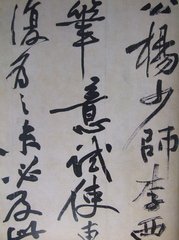 公楊少師李西
筆意試使東
復為之未必及此